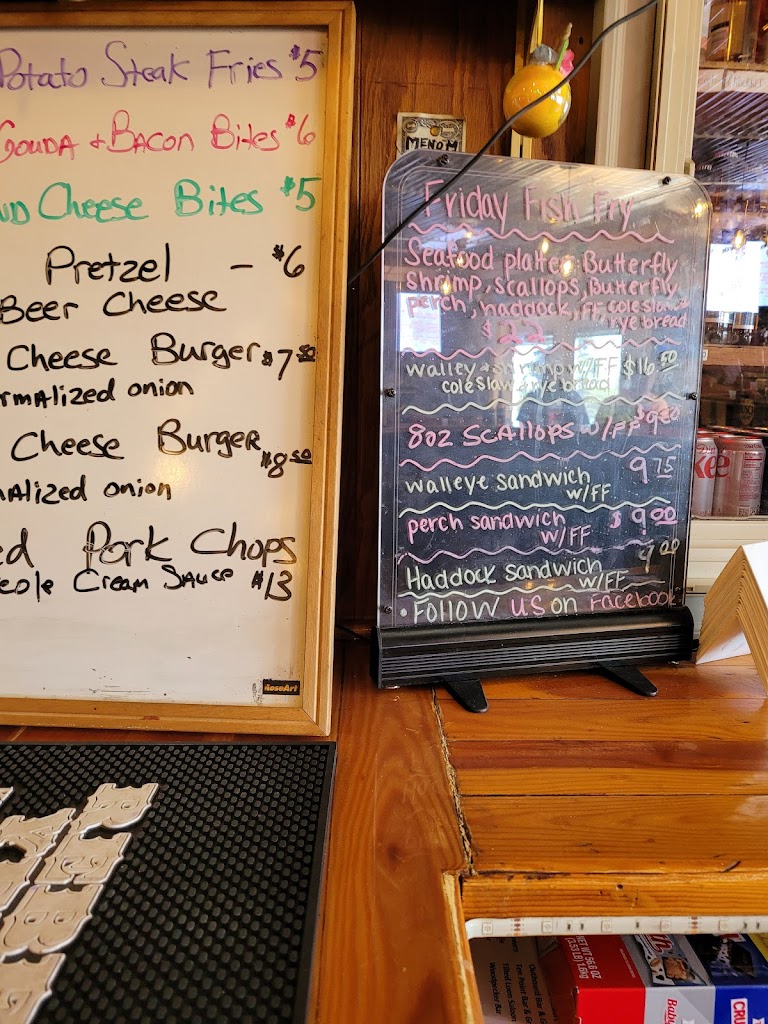 Potato Steak Fries $5
Gouda + Bacon Bites $6
Cheese Bites $5
Pretzel - $6
Beer Cheese
Cheese Burger $7 50
rmalized onion
Cheese Burger $8 50
malized onion
ed Pork Chops
eole Cream Sauce $13
RoseArt
MENOM
Friday Fish Fry
Seafood platter Butterfly
shrimp, scallops, Butterfly
perch, haddock, FF coleslaw +
rye bread
$22
walley + shrimp w/FF $16.50
coleslaw + rye bread
8oz Scallops w/FF $9
walleye sandwich 9 75
w/FF
perch sandwich $9 00
w/FF
Haddock sandwich 9 00
w/FF
• Follow us on Facebook
NET WT 56.6 OZ
(3.53 LB) 1.6kg
Baby
CRU